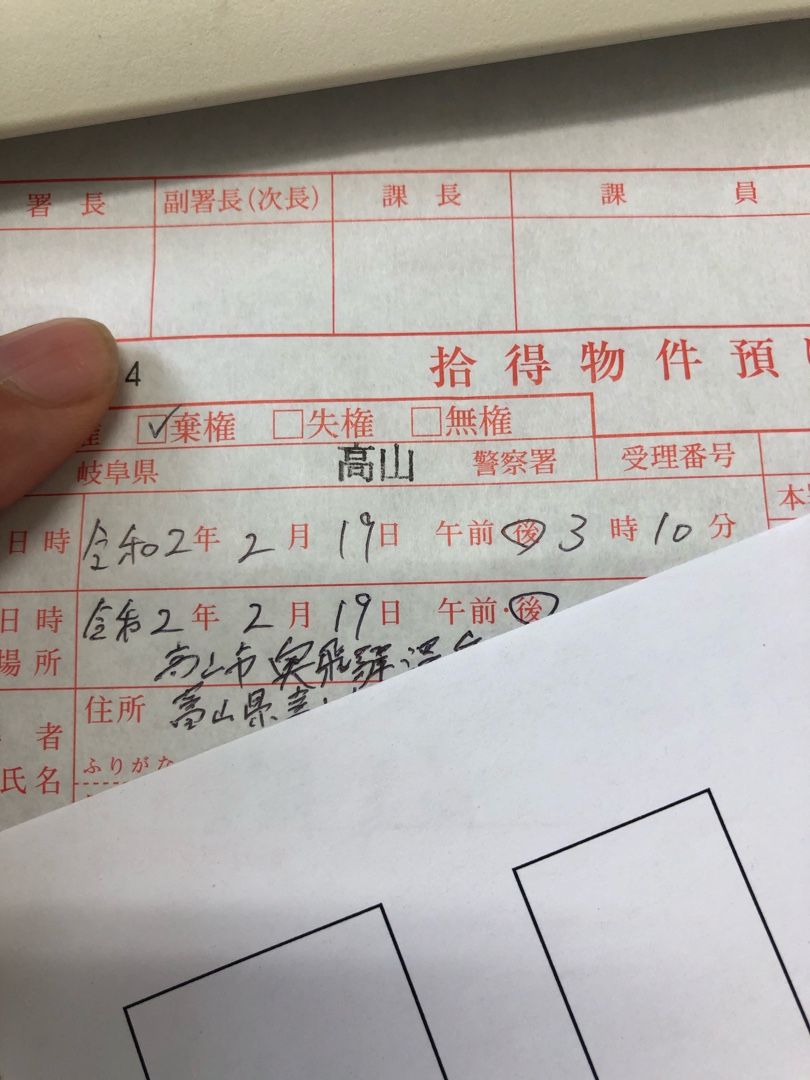 署長 副署長(次長) 課長 課員
4 拾得物件預
☑棄権 □失権 □無権
岐阜県 高山 警察署 受理番号
日時 令和2年2月19日 午前・後 3時10分 本
日時 令和2年2月19日 午前・後
場所 高山市奥飛騨温
者 住所 富山県富
氏名 ふりがな